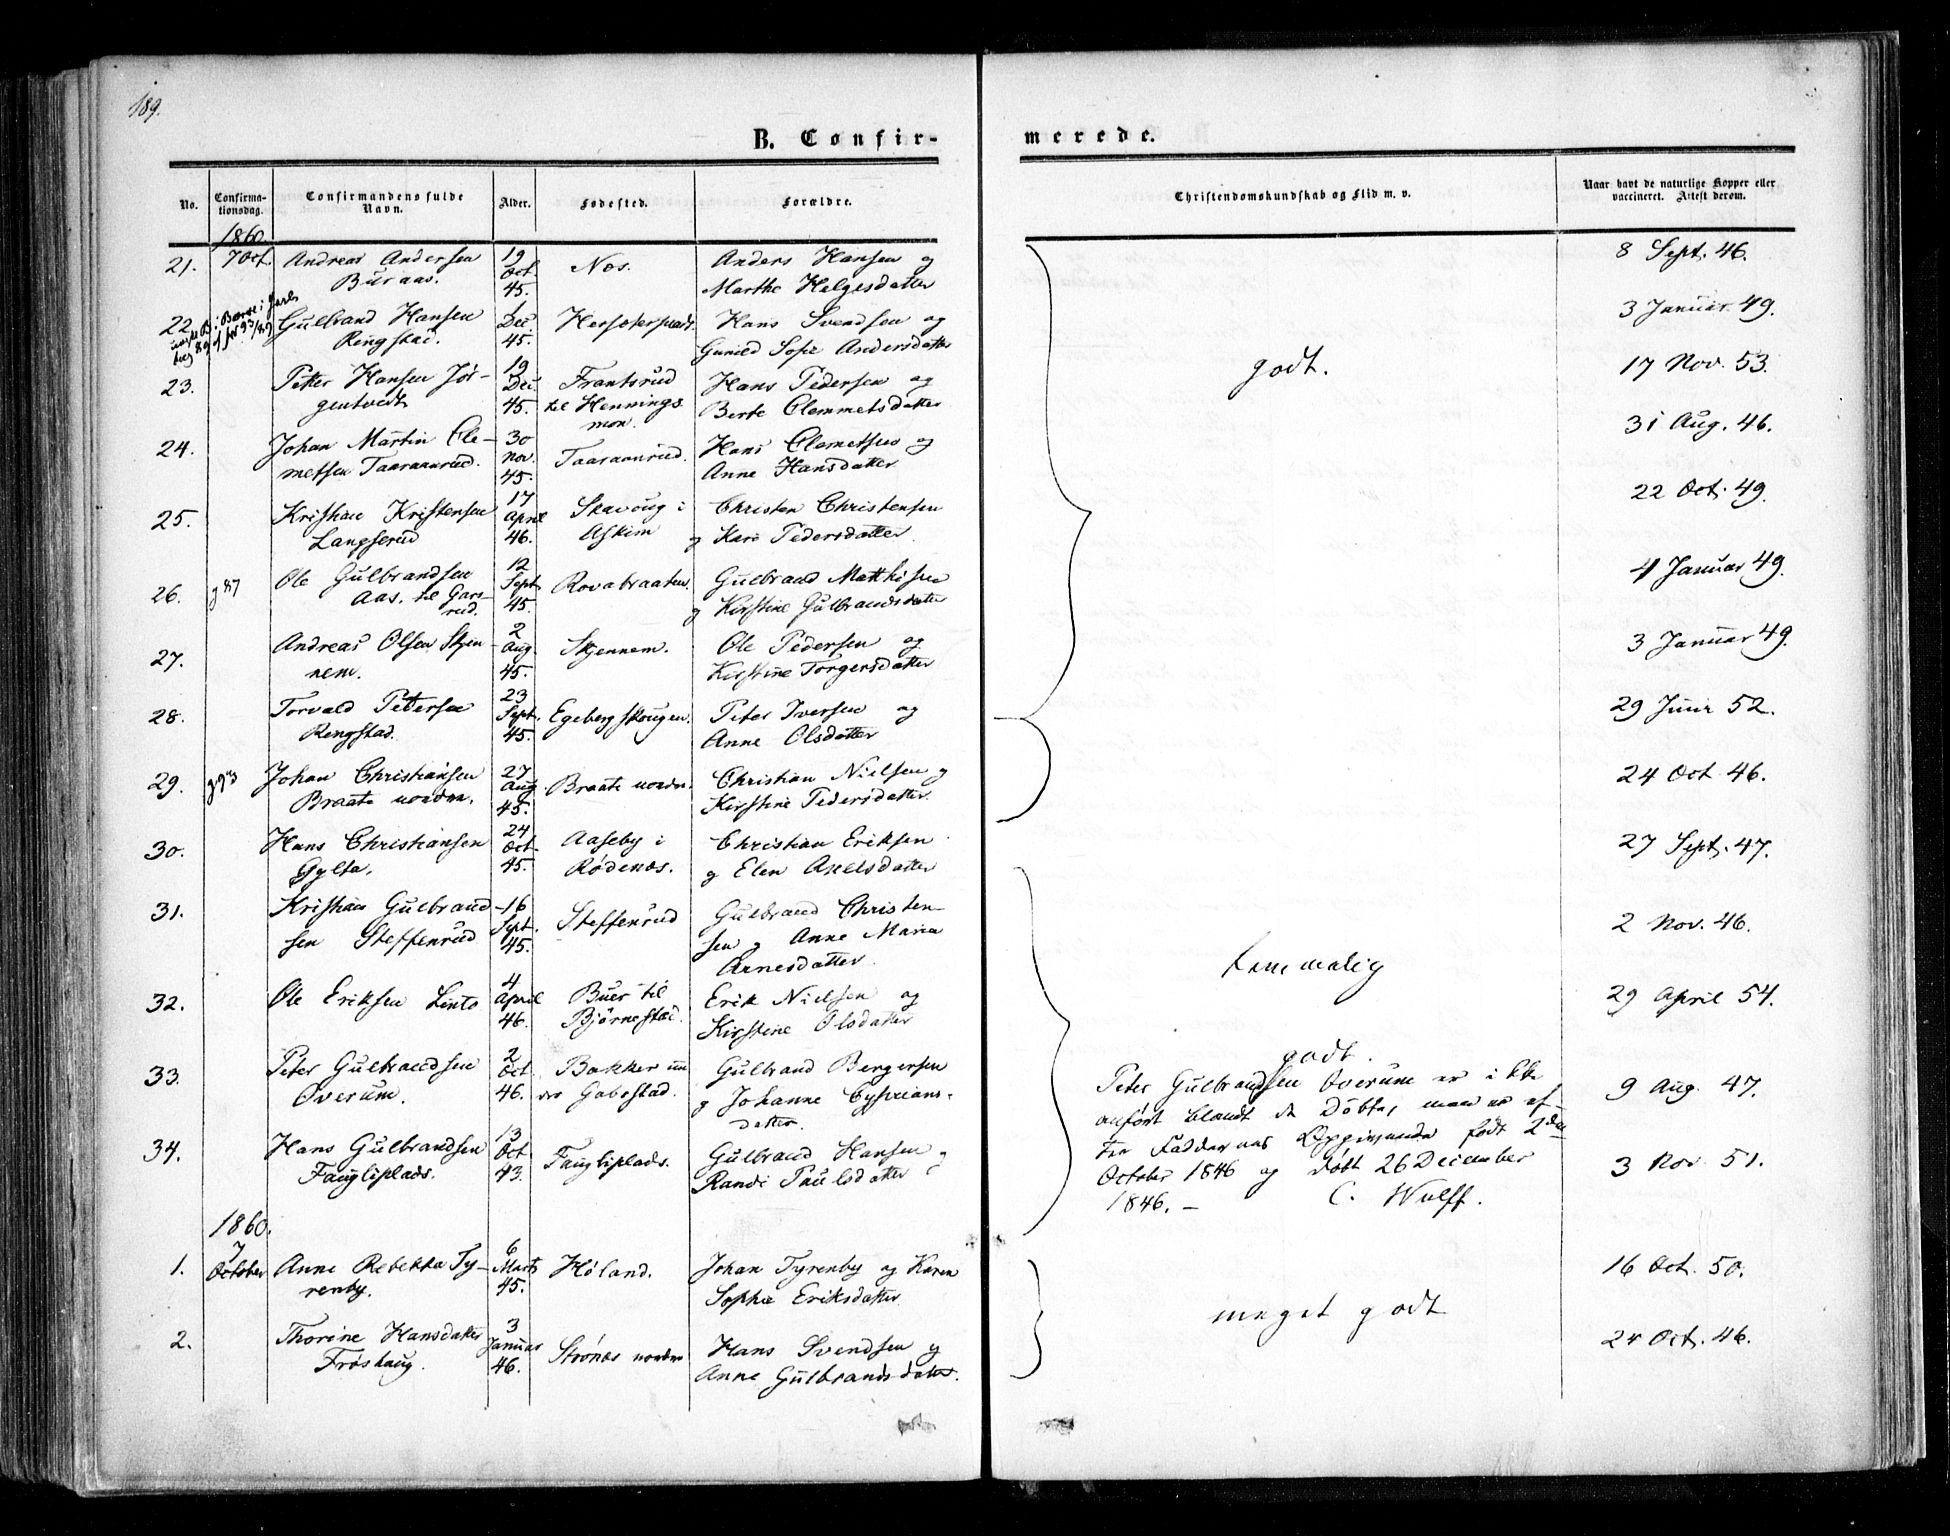 189.
B. Confir-
merede.
No.
Confirma-
tionsdag.
Confirmandens fulde
Navn.
Alder.
Fødested.
Forældre.
Christendomskundskab og Flid m. v.
Naar havt de naturlige Kopper eller
vaccineret. Attest derom.
1860.
21. 7 Oct. Andreas Andersen
Buraas.
19
Oct.
45.
Næs.
Anders Hansen og
Marthe Helgesdatter
8 Sept. 46.
22. Gulbrand Hansen
Ringstad.
1
Dec.
45.
Hersæterplads.
Hans Svendsen og
Gunild Sofie Andersdatter
3 Januar 49.
23. Petter Hansen Jør-
gentvedt
19
Dec.
45.
Frantsrud
til Hennings
mon.
Hans Pedersen og
Berte Clemmetsdatter
godt.
17 Nov. 53.
24. Johan Martin Cle-
metsen Taaraanrud.
30
Nov.
45.
Taaraanrud.
Hans Clemetsen og
Anne Hansdatter
31 Aug. 46.
25. Kristian Kristensen
Langserud
17
April
46.
Skavoug i
Askim
Christen Christensen
og Kari Pedersdatter
22 Oct. 49.
26. g 87 Ole Gulbrandsen
Aas. til Gars-
rud.
12
Sept.
45.
Rovabraaten.
Gulbrand Mathisen
og Kirstine Gulbrandsdatter
4 Januar 49.
27. Andreas Olsen Skjen-
nem.
2
Aug.
45.
Skjennem.
Ole Pedersen og
Kirstine Torgersdatter
3 Januar 49.
28. Torvald Petersen
Ringstad.
23
Sept.
45.
Egebergskougen.
Peter Iversen og
Anne Olsdatter
29 Juni 52.
29. Johan Christiansen
Braate nordre.
27
Aug
45.
Braate nordre.
Christian Nielsen og
Kirstine Pedersdatter.
24 Oct 46.
30. Hans Christiansen
Gylta.
24
Oct.
45.
Aaseby i
Rødenæs.
Christian Eriksen
og Elen Axelsdatter
27 Sept. 47.
31. Kristian Gulbrand-
sen Steffenrud
16
Sept.
45.
Steffenrud
Gulbrand Christen-
sen og Anne Maria
Arnesdatter.
temmelig
2 Nov. 46.
32. Ole Eriksen Linto
4
April
46.
Buer til
Bjørnestad.
Erik Nielsen og
Kirstine Olsdatter
29 April 54.
33. Peter Gulbrandsen
Overum.
2
Oct.
46.
Bakker un
der Gabestad.
Gulbrand Bergersen
og Johanne Cyprians-
datter.
godt.
Peter Gulbrandsen Overum er ikke
anført blandt de Døbte, men er ef-
ter Faddernes Opgivende født 2den
October 1846 og døbt 26 December
1846. — C. Wulff.
9 Aug. 47.
34. Hans Gulbrandsen
Faugliplads.
13
Oct
43.
Faugliplads.
Gulbrand Hansen og
Randi Paulsdatter
3 Nov. 51.
1860.
1. 7
October
Anne Rebekka Ty-
renby.
6
Marts
45.
Høland.
Johan Tyrenby og Karen
Sophie Eriksdatter
meget godt
16 Oct. 50.
2. Thorine Hansdatter
Frøshaug.
3
Januar
46.
Strønæs nordre
Hans Svendsen og
Anne Gulbrandsdatter.
24 Oct. 46.